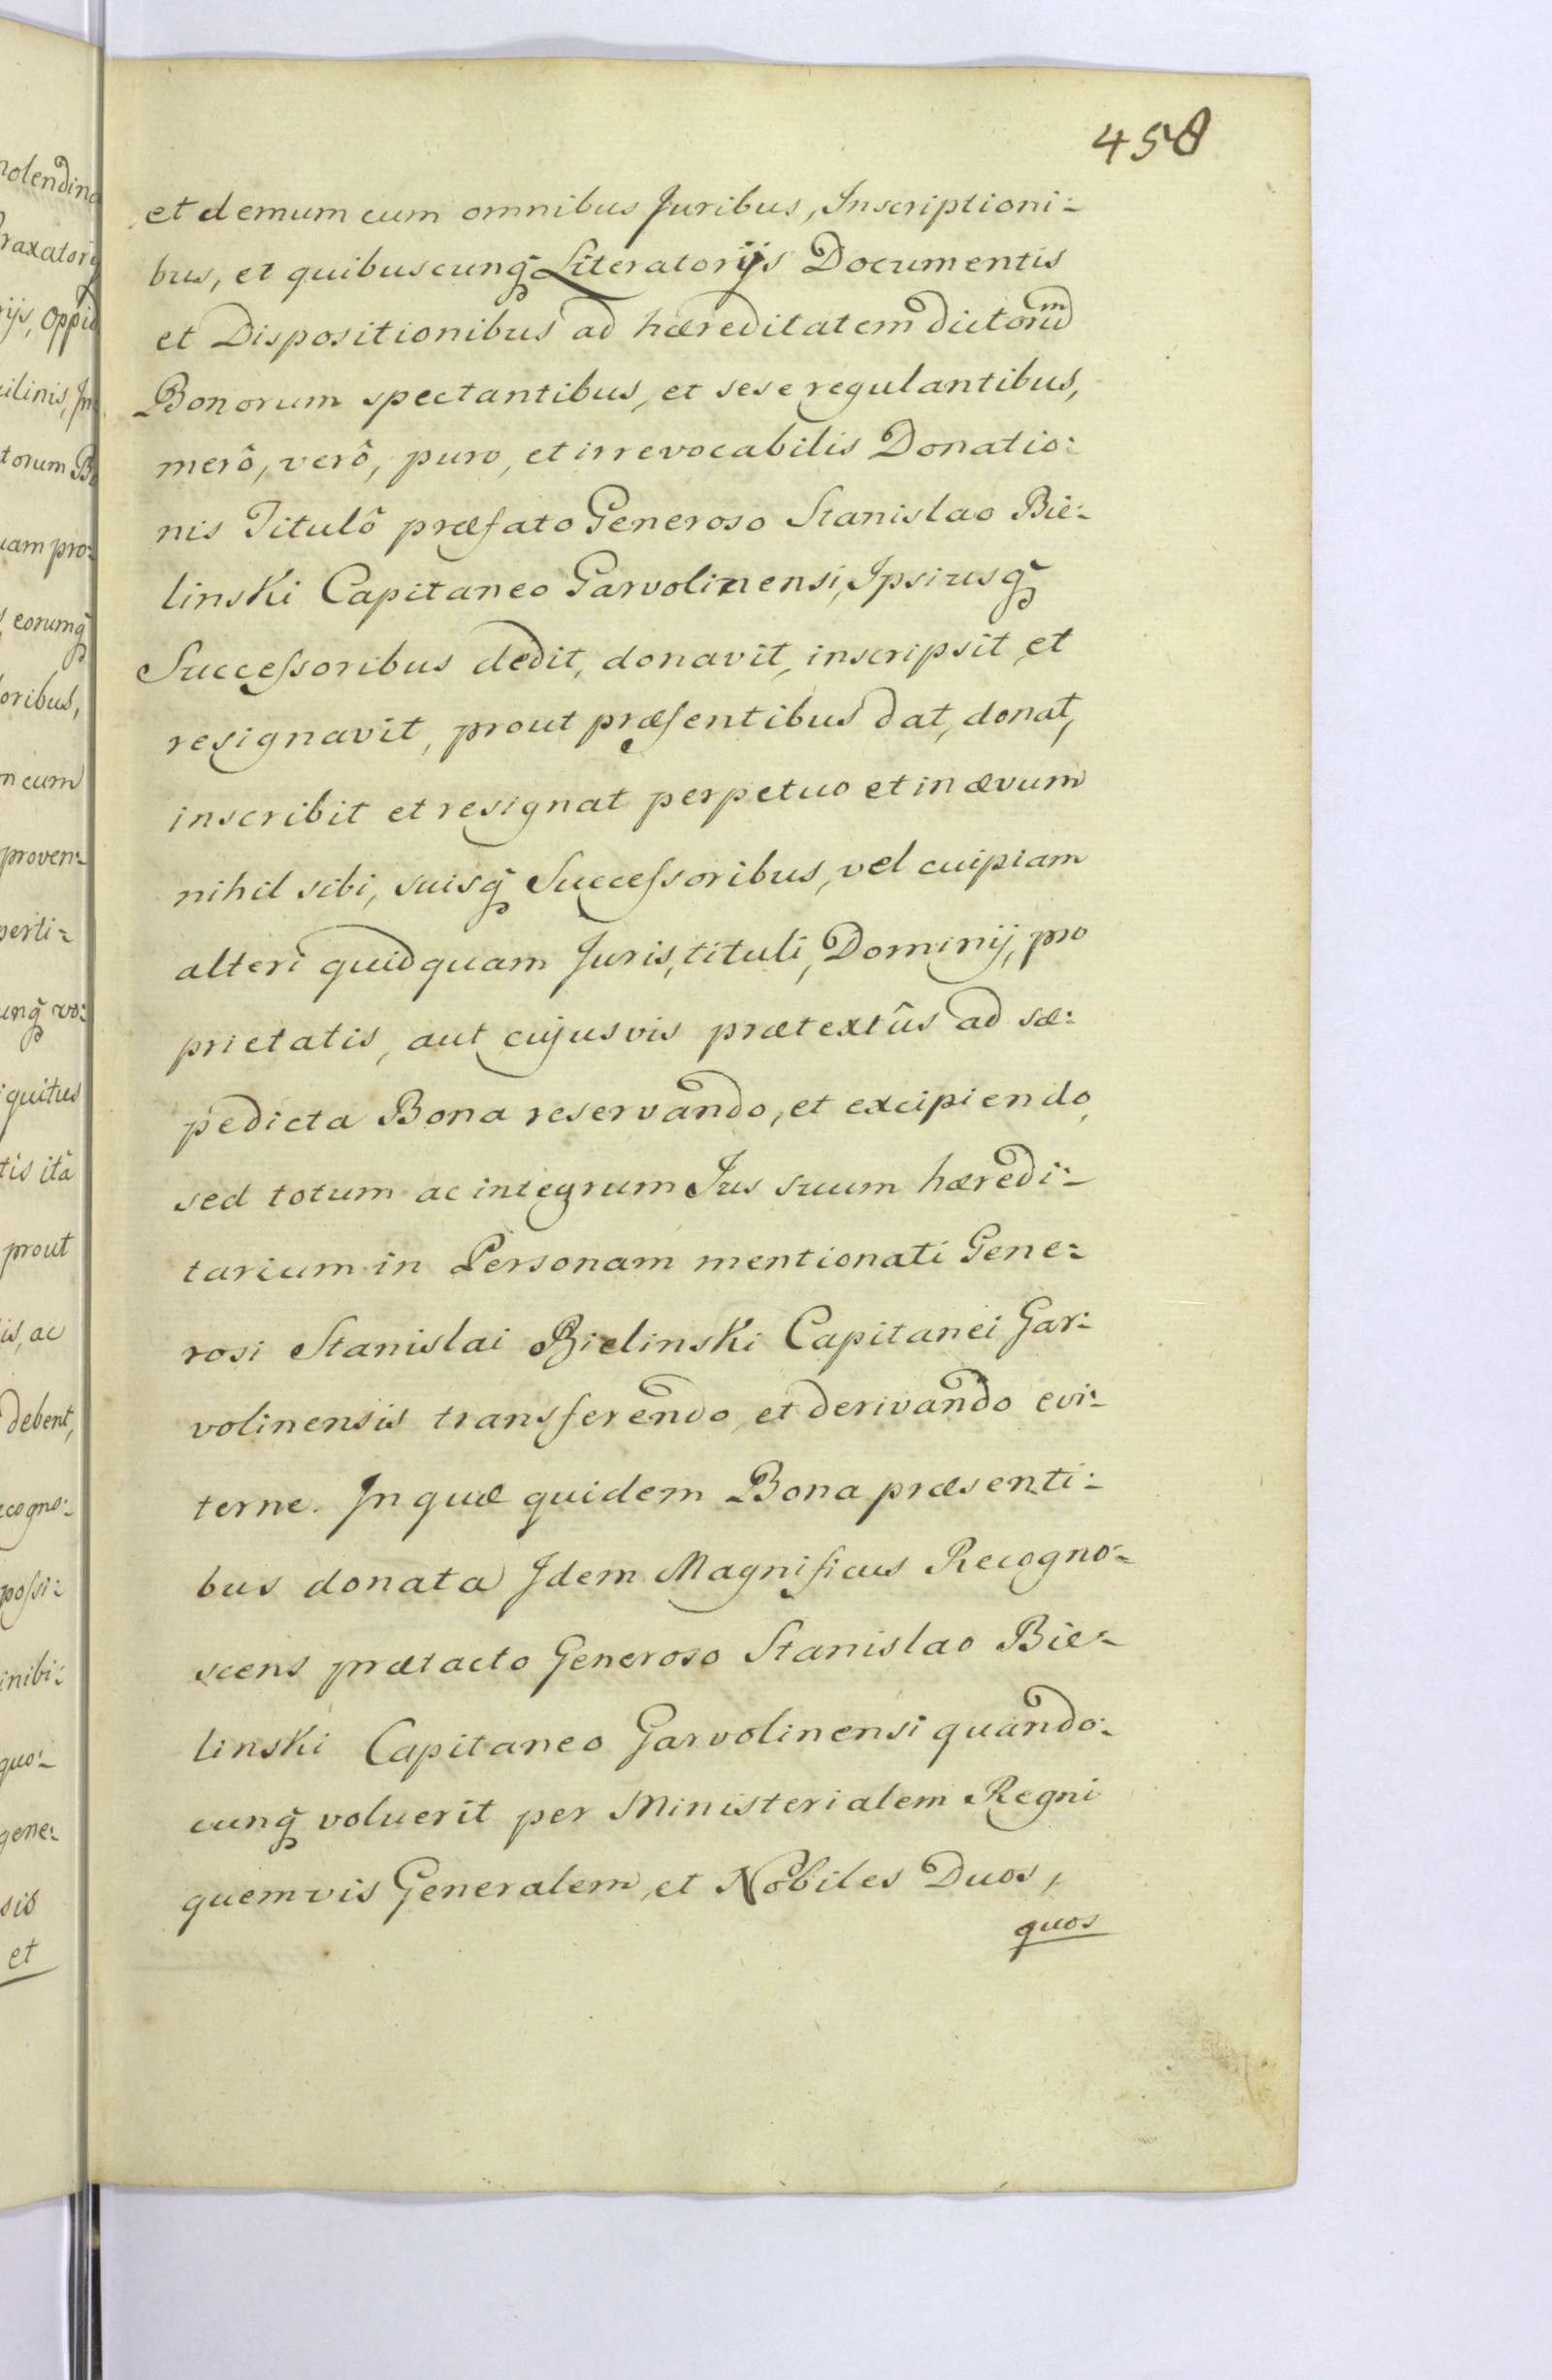 458
et demum cum omnibus Juribus, Inscriptioni-
bus, et quibuscunq̃ Literatorijs Documentis
et Dispositionibus ad hæreditatem dictorum
Bonorum spectantibus, et sese regulantibus,
merô, verô, puro, et irrevocabilis Donatio:
nis Titulô præfato Generoso Stanislao Bie:
linski Capitaneo Garvolinensi, Ipsiusq̃
Succeſsoribus dedit, donavit, inscripsit, et
resignavit, prout præſentibus dat, donat,
inscribit et resignat perpetuo et in ævum
nihil sibi, suisq̃ Succeſsoribus, vel cuipiam
alteri quidquam Juris, tituli, Dominij, pro
prietatis, aut cujusvis prætextûs ad sæ:
pedicta Bona reservando, et excipiendo,
sed totum ac integrum Jus suum hæredi-
tarium in Personam mentionati Gene:
rosi Stanislai Bielinski Capitanei Gar:
volinensis transferendo, et derivando evi:
terne. In quæ quidem Bona præsenti:
bus donata Idem Magnificus Recogno:
scens prætacto Generoso Stanislao Bie:
linski Capitaneo Garvolinensi quando:
cunq̃ voluerit per Ministerialem Regni
quemvis Generalem, et Nobiles Duos,
quos
molendina
raxatorij
rijs, Oppid
ilinis, In
torum B
uam pro:
eorumq̃
oribus,
n cum
proven:
perti:
unq̃ vo:
iquitus
tis itâ
prout
is, ac
debent,
ecogno:
poſsi:
inibi:
quo:
gene:
sis
et